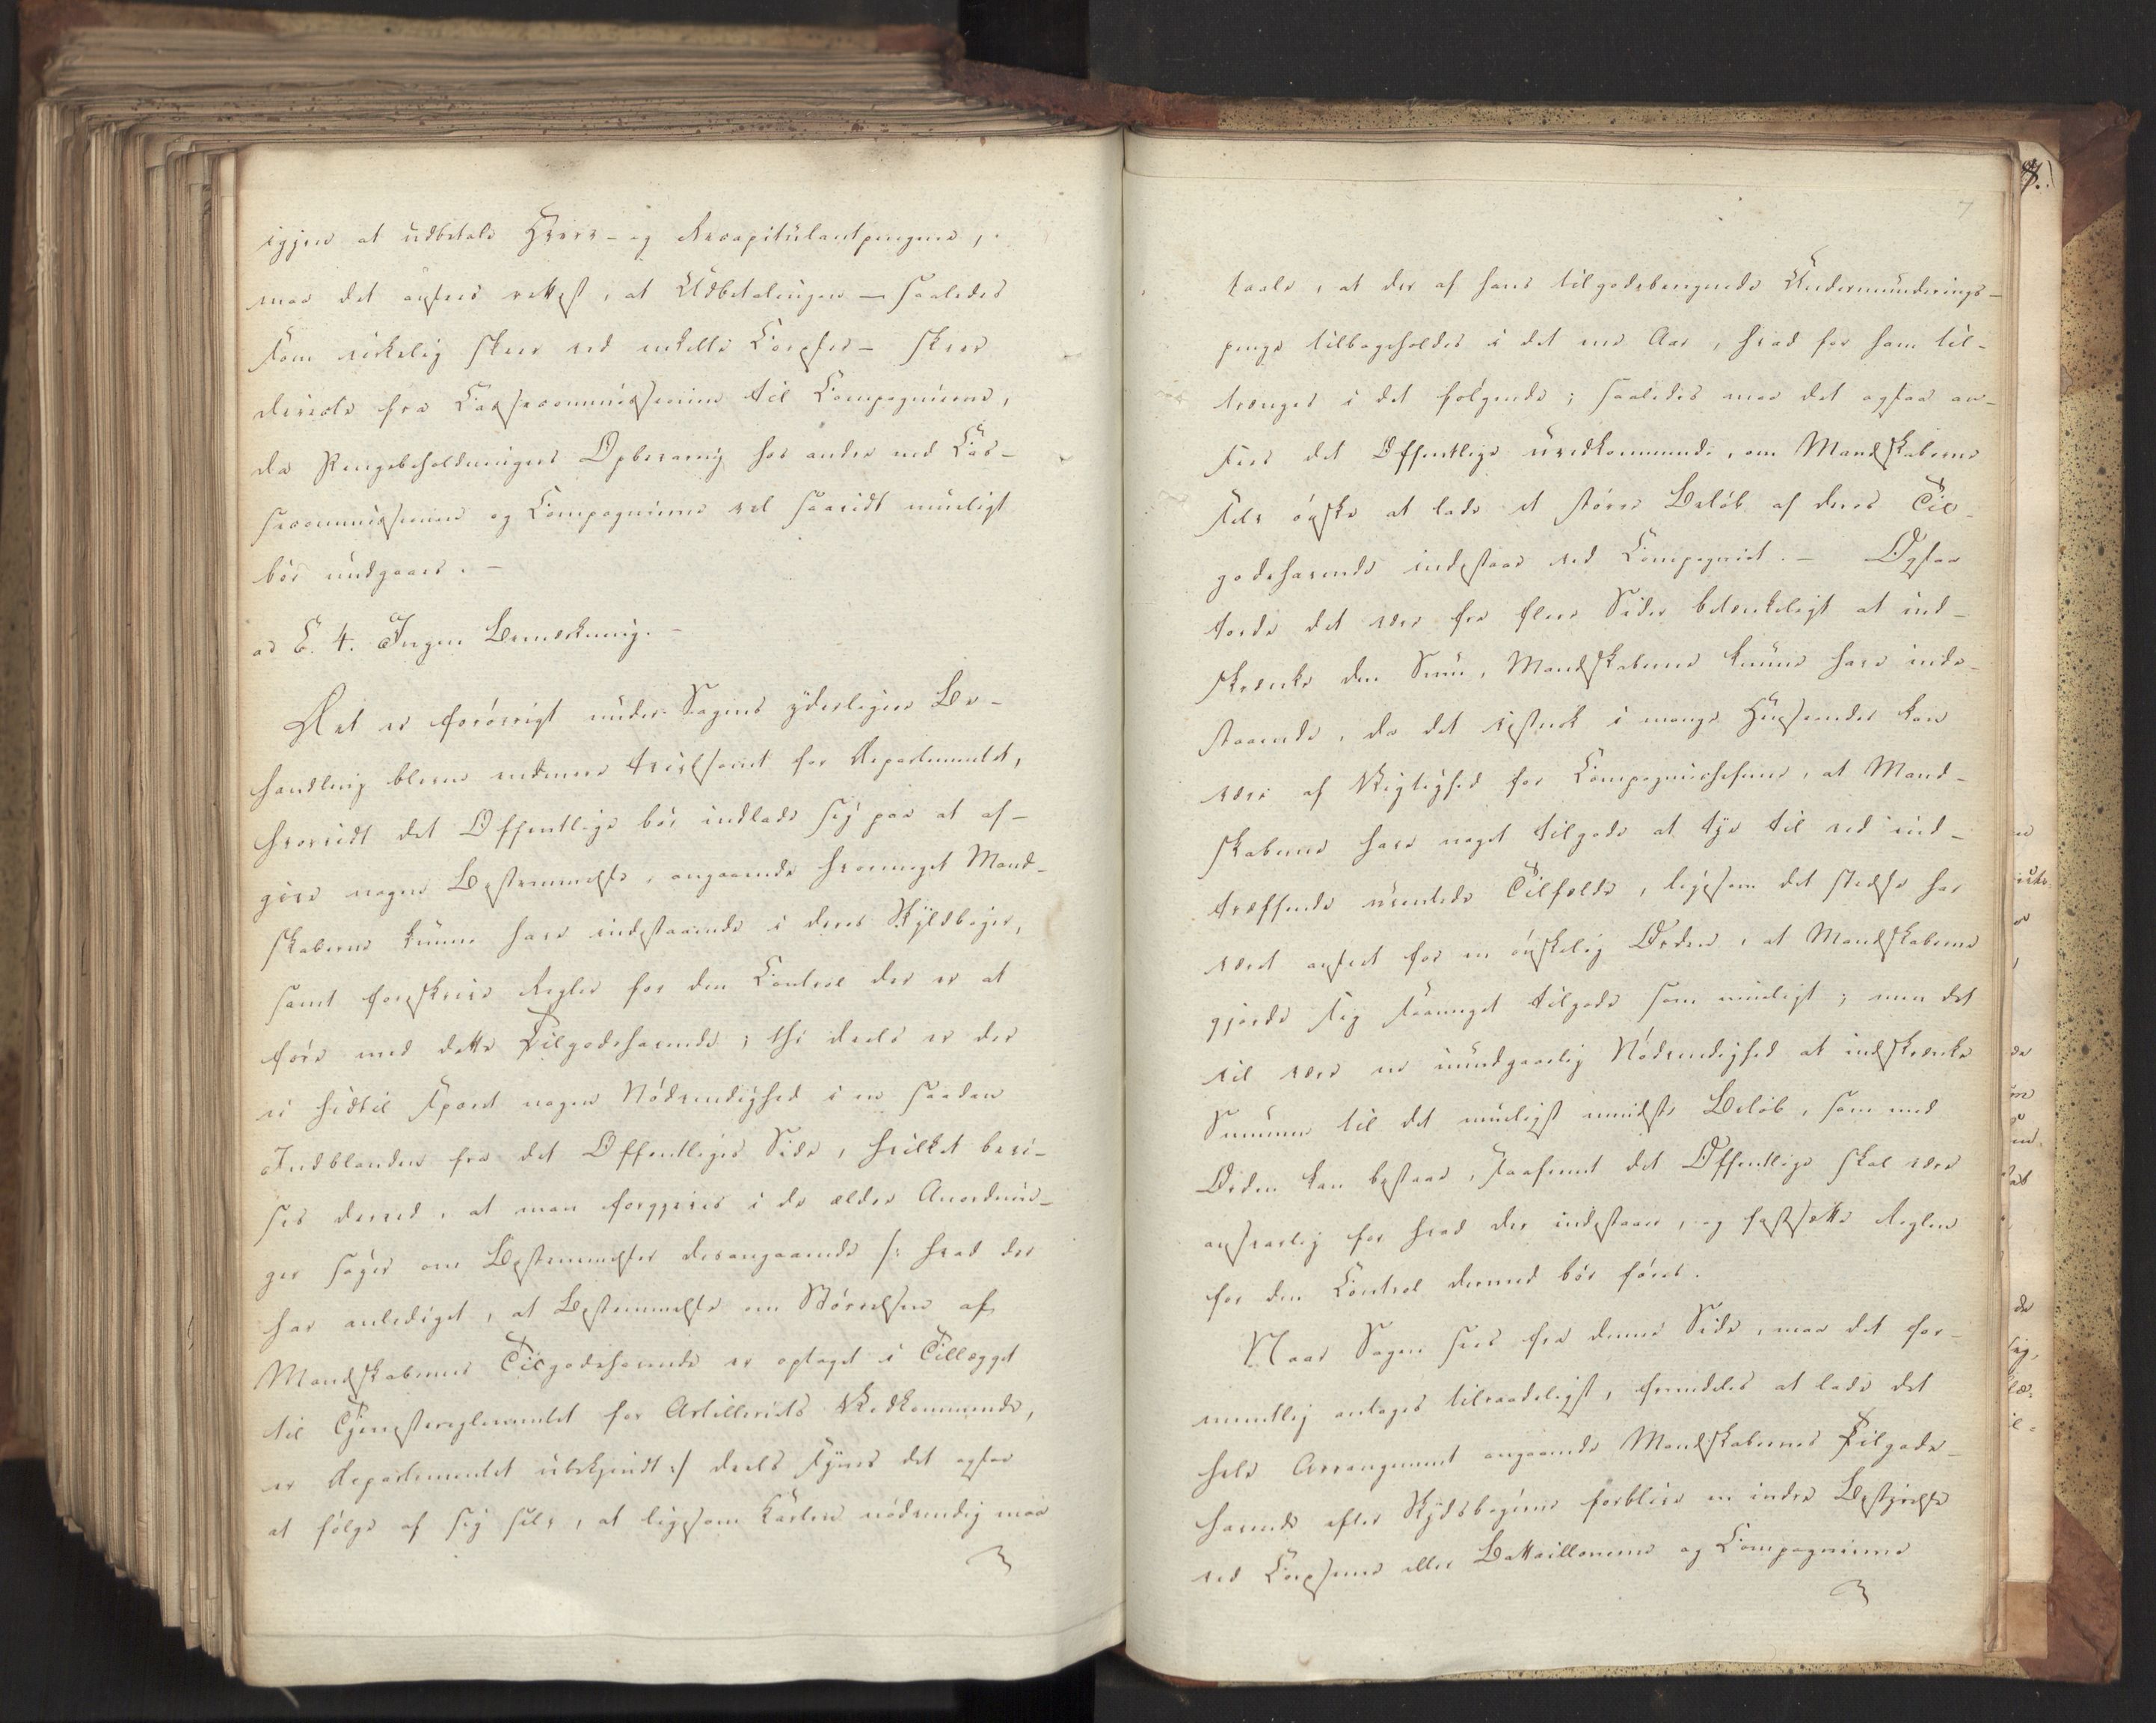 igjen at udbetale Hverv- og Recapitulantpengene,
maa det ansees rettest, at Udbetalingen – saaledes
som virkelig skeer ved enkelte Corpser – skeer
directe fra Cassecommissionerne til Compagnierne,
da Pengebeholdningers Opbevaring hos andre end Cas-
secommissionerne og Compagnierne vel saavidt mueligt
bör undgaaes. –
ad E. 4. Ingen Bemærkning. –
Det er forövrigt under Sagens yderligere Be-
handling bleven endmere tvivlsomt for Departementet,
hvorvidt det Offentlige bör indlade sig paa at af-
give nogen Bestemmelse, angaaende hvormeget Mand-
skaberne kunne have indestaaende i deres Skyldböger,
samt foreskrive Regler for den Control der er at
före med dette Tilgodehavende; thi deels er der
ei hidtil sporet nogen Nödvendighed i en saadan
Indblanden fra det Offentliges Side, hvilket bevi-
ses derved, at man forgjeves i de ældre Anordnin-
ger söger om Bestemmelser desangaaende /: hvad der
har anlediget, at Bestemmelse om Störrelsen af
Mandskabernes Tilgodehavende er optaget i Tillægget
til Tjenestereglementet for Artilleriets Vedkommende,
er Departementet ubekjendt :/ deels synes det ogsaa
at fölge af sig selv, at ligesom Karlen nödvendig maa
7
taale, at der af hans tilgodehavende Undermunderings-
penge tilbageholdes i det ene Aar, hvad for ham til-
trænges i det fölgende; saaledes maa det ogsaa an-
sees det Offentlige uvedkommende, om Mandskaberne
selv önske at lade et större Belöb af deres Til-
godehavende indestaae ved Compagniet. – Ogsaa
torde det være fra flere Sider betænkeligt at ind-
skrænke den Sum, Mandskaberne kunne have inde-
staaende, da det vistnok i mange Henseender kan
være af Vigtighed for Compagniecheferne, at Mand-
skaberne have noget tilgode at tye til ved ind-
træffende uventede Tilfælde, ligesom det stedse har
været anseet for en önskelig Orden, at Mandskaberne
gjorde sig saameget tilgode som mueligt; men det
vil være en uundgaaelig Nödvendighed at indskrænke
Summen til det mueligst mindste Belöb, som med
Orden kan bestaae, saafremt det Offentlige skal være
ansvarlig for hvad der indestaaer, og fastsætte Reglerne
for den Control dermed bör föres.
Naar Sagen sees fra denne Side, maa det for-
mentlig antages tilraadeligst, fremdeles at lade det
hele Arrangement angaaende Mandskabernes Tilgode-
havende efter Skyldbögerne forblive en indre Bestyrelse
ved Corpserne eller Battaillonerne og Compagnierne